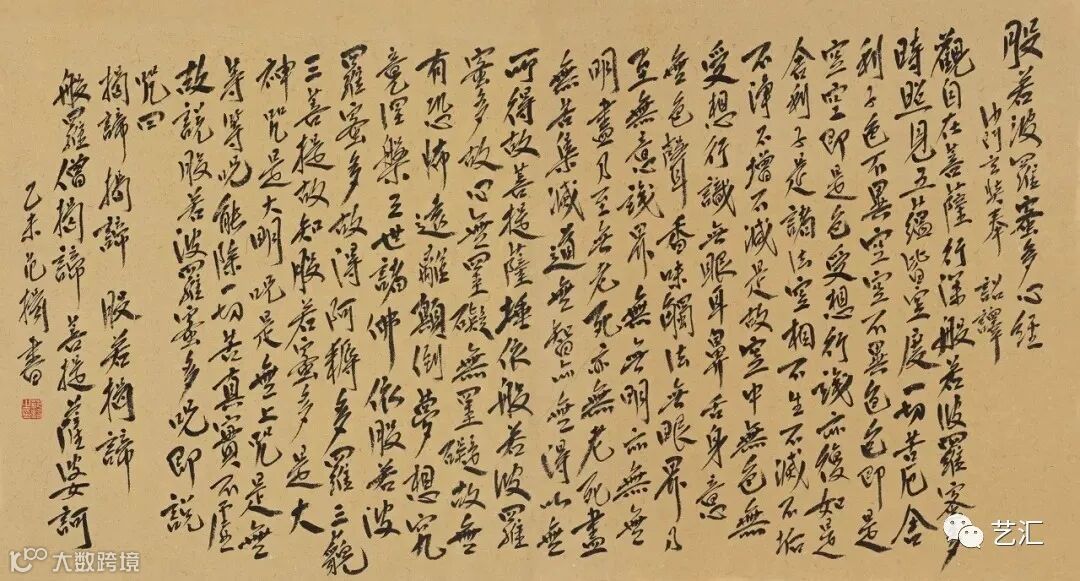 般若波羅蜜多心經
沙門玄奘奉 詔譯
觀自在菩薩行深般若波羅蜜多
時照見五蘊皆空度一切苦厄舍
利子色不異空空不異色色即是
空空即是色受想行識亦復如是
舍利子是諸法空相不生不滅不垢
不淨不增不減是故空中無色無
受想行識無眼耳鼻舌身意
無色聲香味觸法無眼界乃
至無意識界無無明亦無無
明盡乃至無老死亦無老死盡
無苦集滅道無智亦無得以無
所得故菩提薩埵依般若波羅
蜜多故心無罣礙無罣礙故無
有恐怖遠離顛倒夢想究
竟涅槃三世諸佛依般若波
羅蜜多故得阿耨多羅三藐
三菩提故知般若蜜多是大
神咒是大明咒是無上咒是無
等等咒能除一切苦真實不虛
故說般若波羅蜜多咒即說
咒曰
揭諦揭諦 般若揭諦
般羅僧揭諦 菩提薩婆訶
乙未范書
大数跨境
艺汇